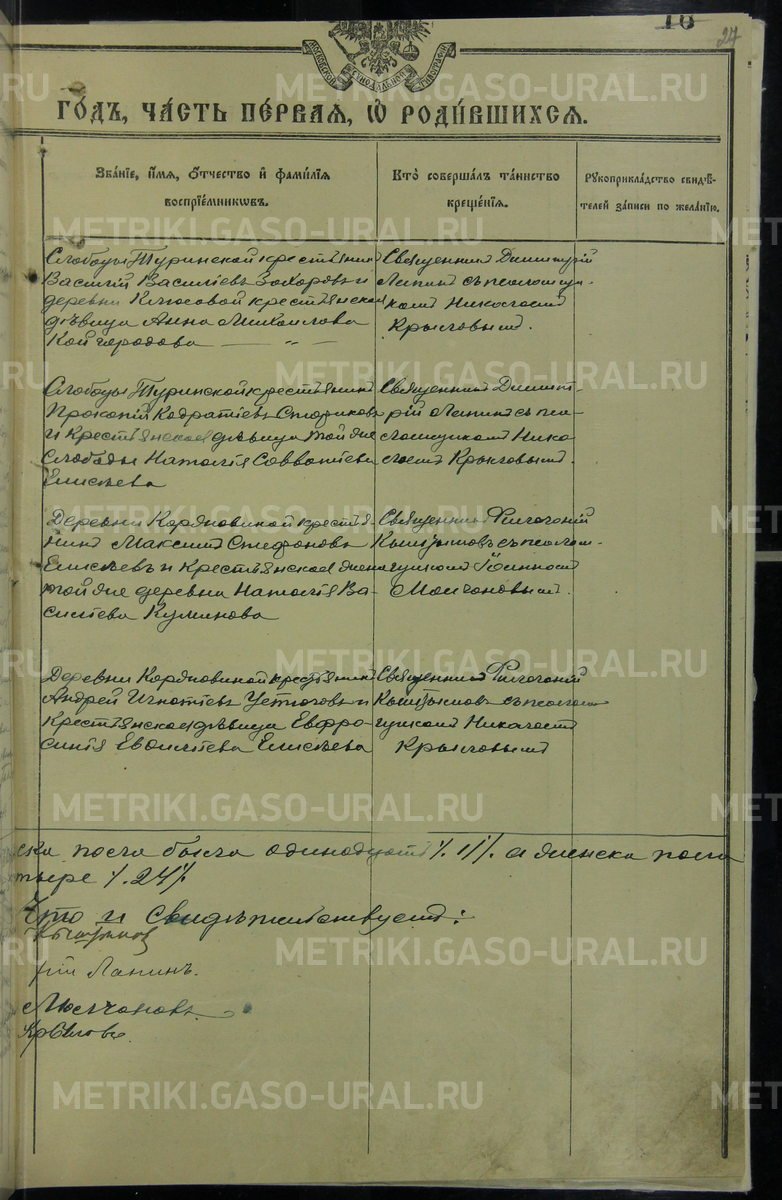 16
27
ГОДЪ, ЧАСТЬ ПЕРВАѦ, Ѡ РОДИВШИХСѦ.
Званіе, имѧ, отчество и фамиліѧ воспріемниковъ.
Кто совершалъ таинство крещеніѧ.
Рукоприкладство свидѣтелей записи по желанію.
Слободы Туринской крестьянинъ
Василій Васильевъ Захаровъ и
деревни Ключовой крестьянская
дѣвица Анна Михайлова
Кайгородова
Священникъ Димитрій
Лапинъ съ псаломщи-
комъ Николаемъ
Крыловымъ.
Слободы Туринской крестьянинъ
Прокопій Кодратьевъ
и крестьянская дѣвица той же
Слободы Наталія Савватіева
Елисѣева
Священникъ Димит-
рій Лапинъ съ пса-
ломщикомъ Нико-
лаемъ Крыловымъ.
Деревни Коряковиной крестья-
нинъ Максимъ Стефановъ
Елисѣевъ и крестьянская жена
той же деревни Наталія Ва-
сильева Куминова
Священникъ Филогоній
Кыштымовъ съ псалом-
щикомъ Іоанномъ
Молчановымъ.
Деревни Коряковиной крестьянинъ
Андрей Игнатьевъ Устюговъ и
крестьянская дѣвица Евфро-
синія Елисѣева
Священникъ Филогоній
Кыштымовъ съ псалом-
щикомъ Николаемъ
Крыловымъ
ска пола было одинадцать /. 11/. а женска пола
тыре /. 24/.
Что и свидѣтельствуемъ:
Кыштымовъ
рій Лапинъ.
Молчановъ.
Крыловъ.
METRIKI.GASO-URAL.RU